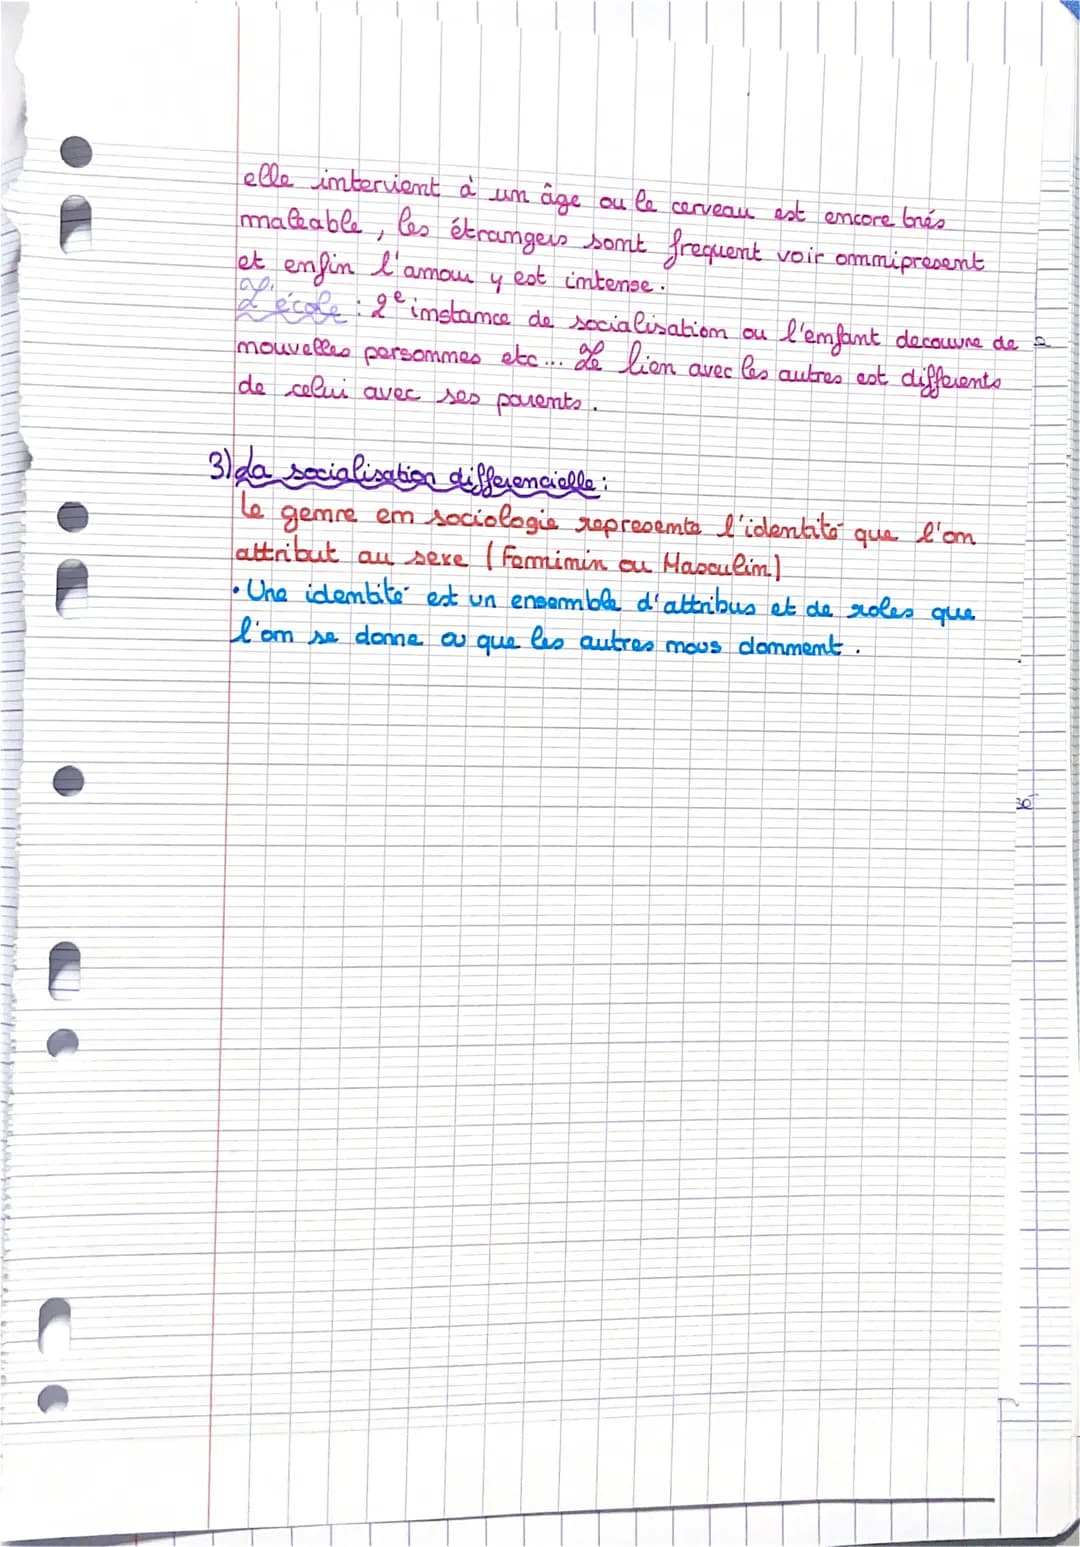 elle intervient à un âge ou le cerveau est encore très
maleable, les étrangers sont frequent voir omnipresent
et enfin l'amour y est intense.
L'école : 2e instance de socialisation ou l'enfant decouvre de
nouvelles personnes etc... Le lien avec les autres est differents
de celui avec ses parents.
3) La socialisation differencielle :
Le genre en sociologie represente l'identité que l'on
attribut au sexe (Feminin ou Masculin)
• Une identité est un ensemble d'attribus et de roles que
l'on se donne ou que les autres nous donnent.